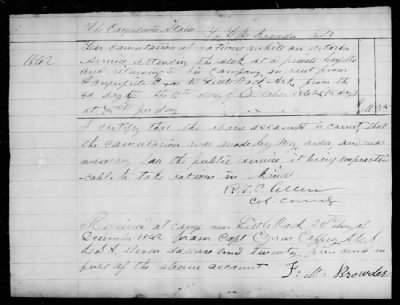 The Confederate States To F. M. Browder Dr
1862
For commutation of rations while on detached
service attending the sick at a private hospital
and returning to his company, in rout from
to Little Rock Ark from the
day of October 1862
at 75 cts per day
I certify that the above account is correct, that
the commutation was made by my order, and was
necessary for the public service it being impracti-
cable to take rations in kind
R. T. P. Allen
Col. Comdg
Received at camp near Little Rock 20th day of
December 1862 from Capt
eleven dollars and twenty five cents in
full of the above account
F. M. Browder